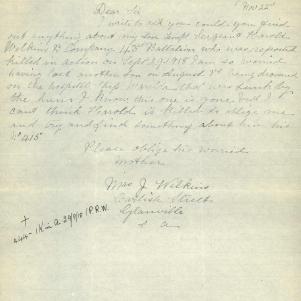 Nov 25
Dear Sir
I write to ask you could you find
out anything about my son Sergeant Harold
Wilkins B Company 43 Battalion who was reported
killed in action on Sept 29 1918 I am so worried
having lost another son on August 3rd being drowned
on the hospital ship Warilda that was sunk by
the huns I know this one is gone but I
cant think Harold is Killed So oblige me
and try and find something about him his
No 415
Please oblige his worried
mother
Mrs J Wilkins
Carlisle Street
Glanville
S A
K in A 29/9/18 P.R.W.